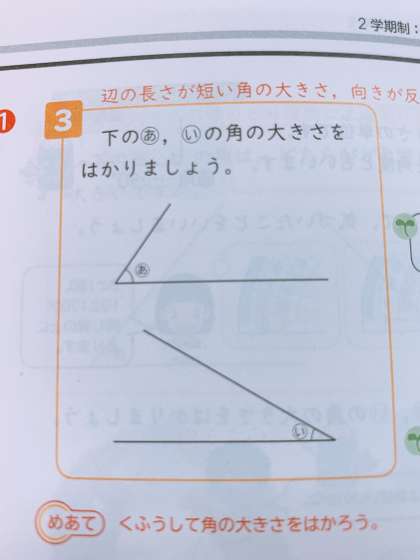 2学期制：
辺の長さが短い角の大きさ，向きが反
1
3
下のあ，いの角の大きさを
はかりましょう。
あ
い
めあて くふうして角の大きさをはかろう。